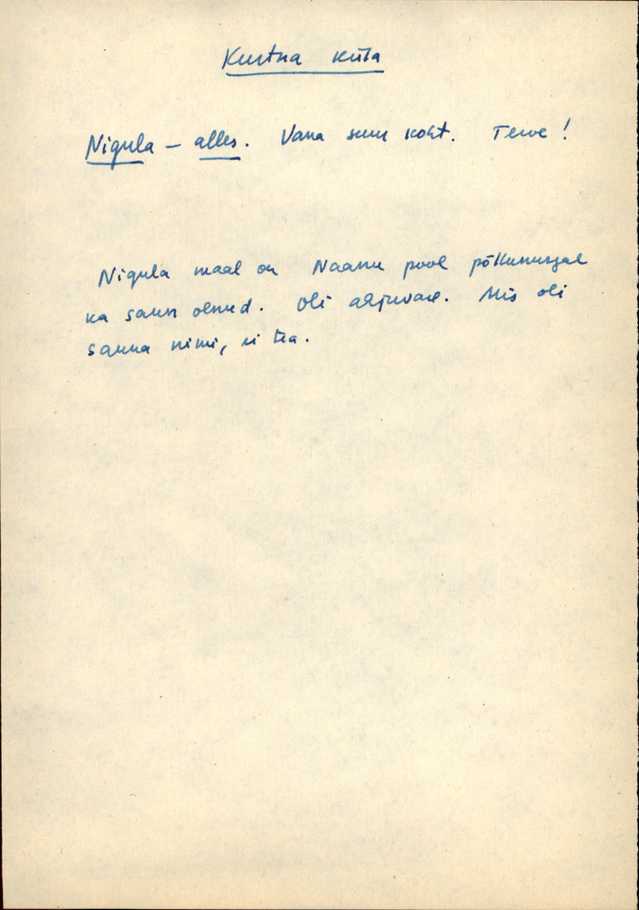 Kurtna küla
Nigula – alles. Vana suur koht. Terve!
Nigula maal on Naanu pool põllunurgal
ka saun olnud. Oli
sauna nimi, ei tea.